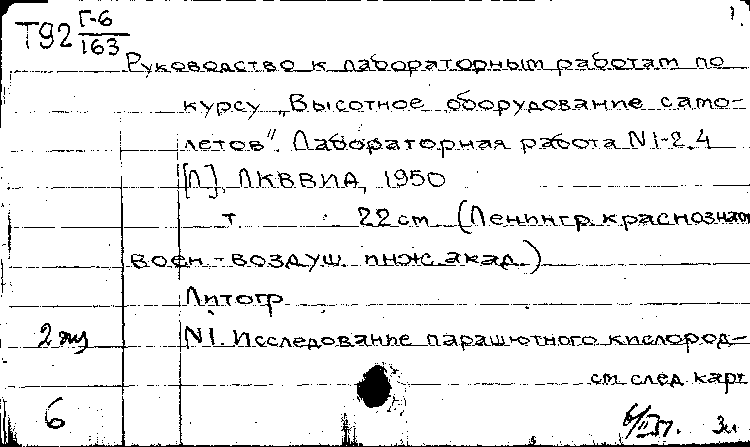 Т92 Г-6/163
1.
Руководство к лабораторным работам по
курсу „Высотное оборудование само-
летов". Лабораторная работа N 1-2, 4
[Л], ЛКВВИА, 1950
т 22 см (Ленингр. краснознам
воен.-воздуш. инж. акад.)
Литогр
2 экз N1. Исследование парашютного кислород-
см след карт
6